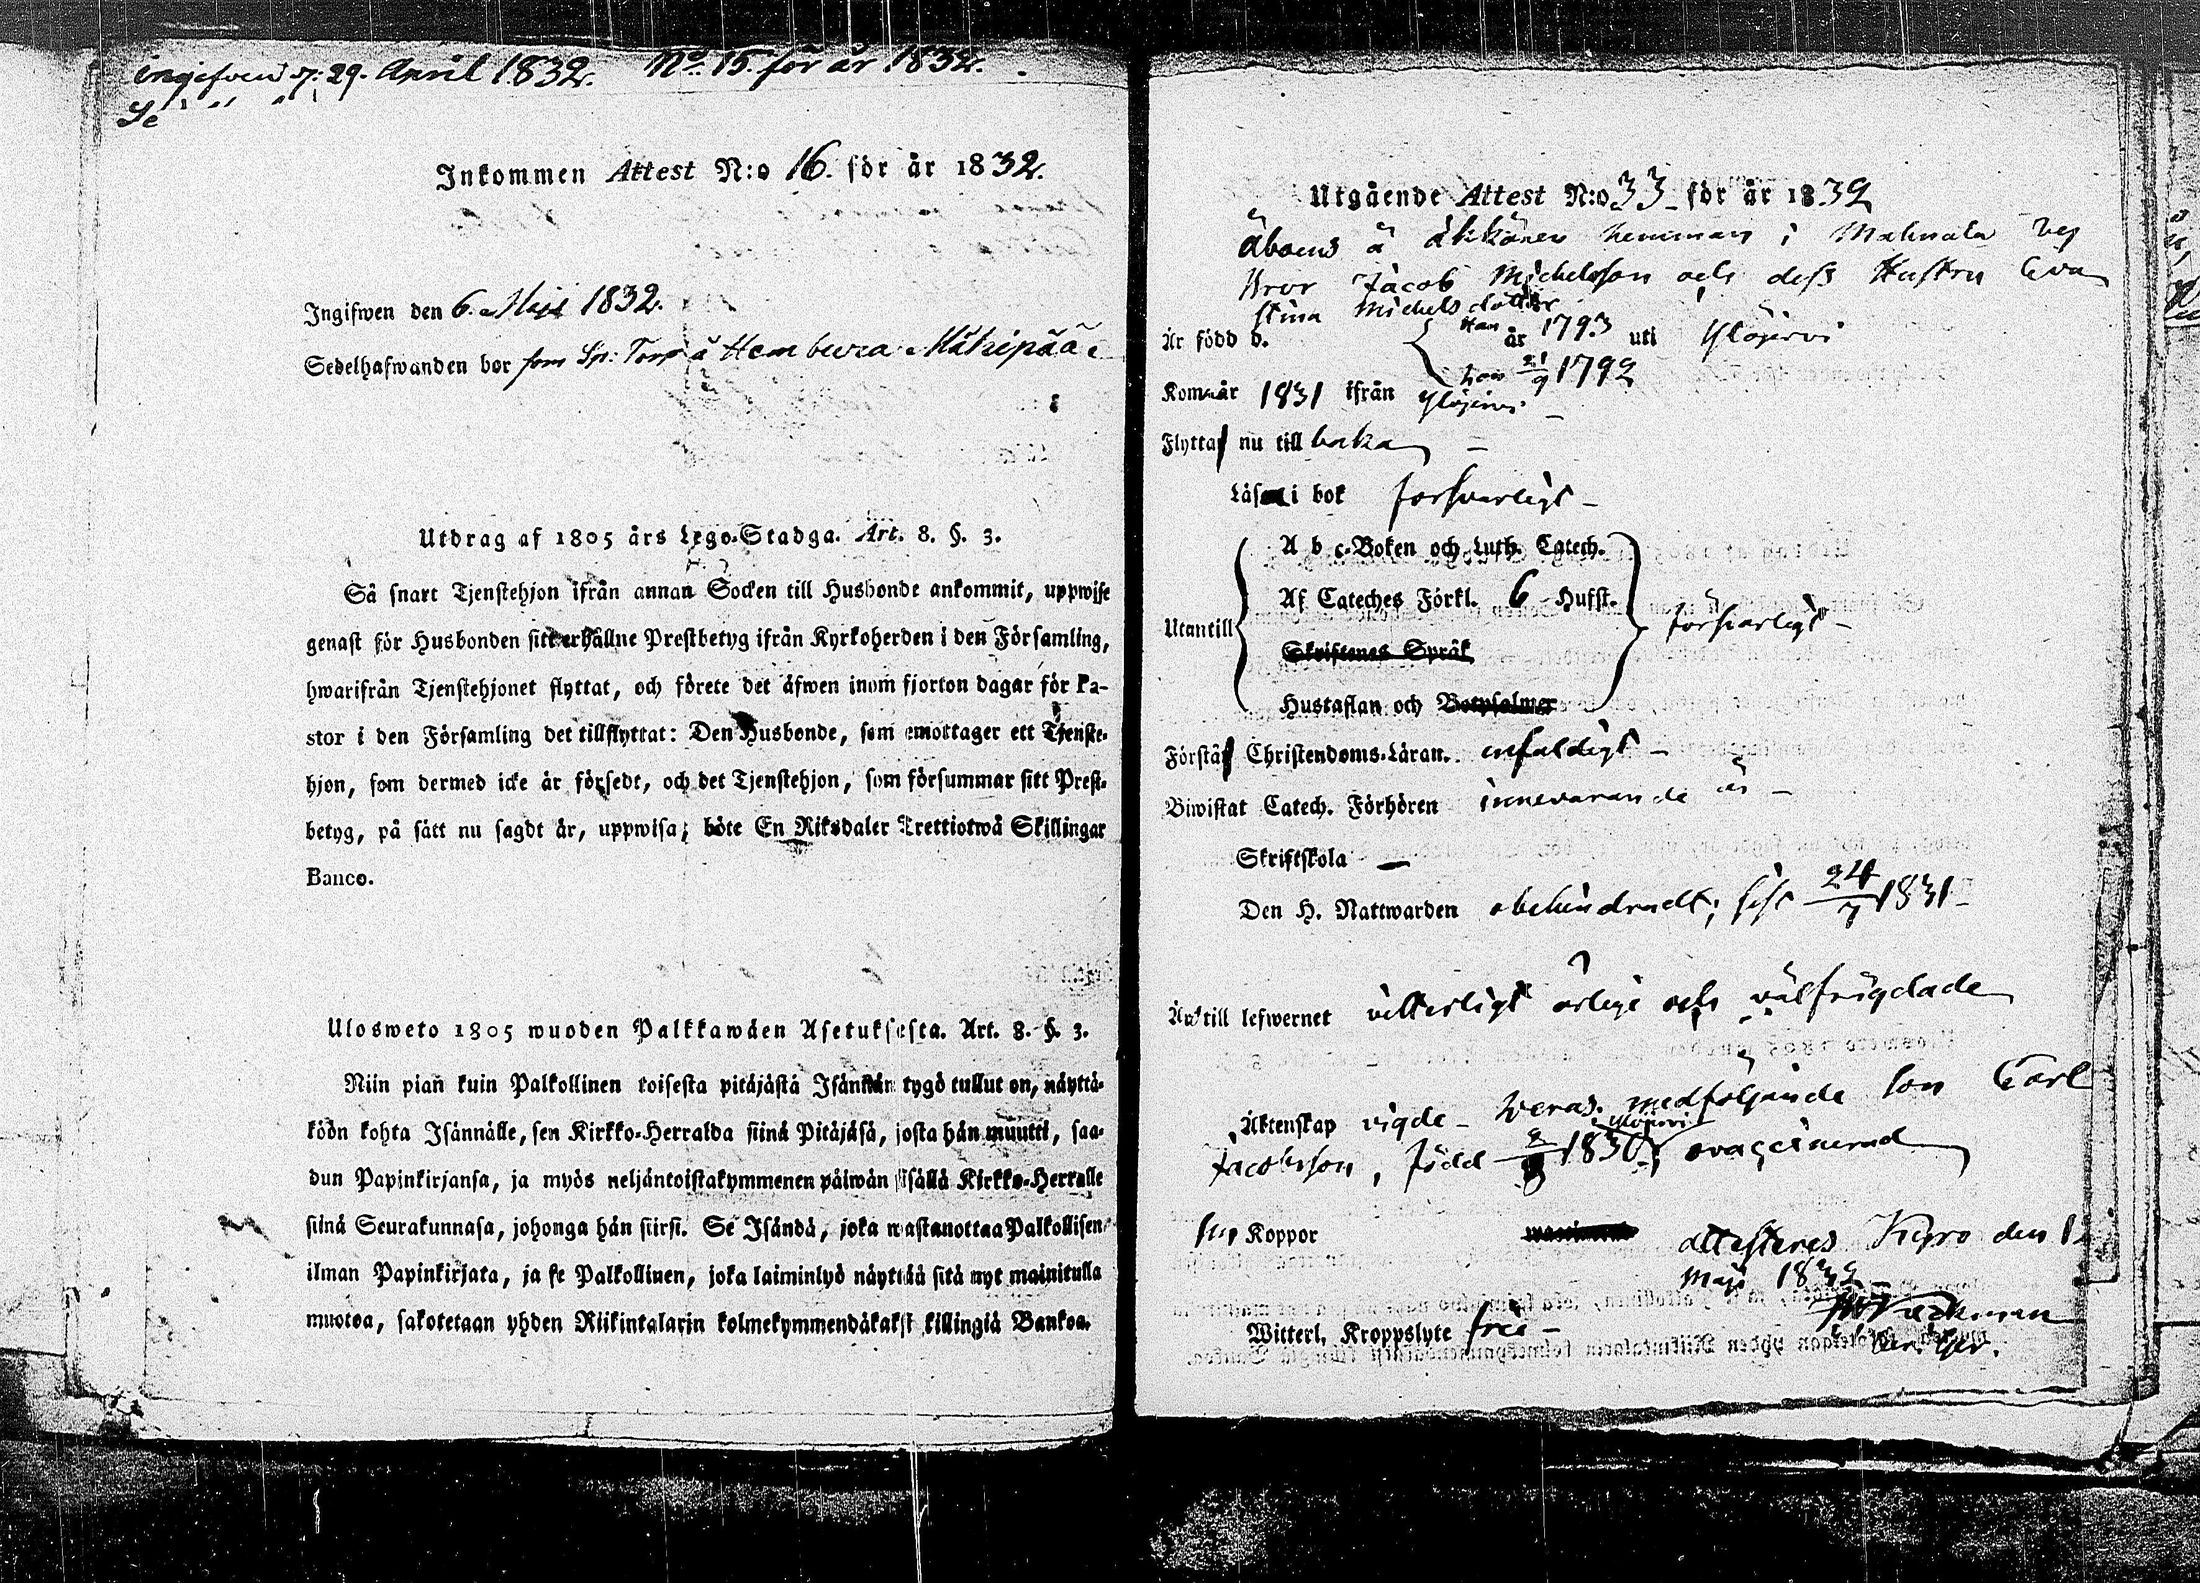 ingifven d. 29. April 1832. No. 15. för år 1832.
Inkommen Attest N:o 16. för år 1832.
Ingifwen den 6. Maji 1832.
Sedelhafwanden bor som Sp: Torp å Hembura Mäkipää
Utdrag af 1805 års Lego-Stadga. Art. 8. §. 3.
Så snart Tjenstehjon ifrån annan Socken till Husbonde ankommit, uppwise
genast för Husbonden sitt erhållne Prestbetyg ifrån Kyrkoherden i den Församling,
hwarifrån Tjenstehjonet flyttat, och förete det äfwen inom fjorton dagar för Pa-
stor i den Församling det tillflyttat: Den Husbonde, som emottager ett Tjenste-
hjon, som dermed icke är försedt, och det Tjenstehjon, som försummar sitt Prest-
betyg, på sätt nu sagdt är, uppwisa; böte En Riksdaler Trettiotwå Skillingar
Banco.
Ulosweto 1805 wuoden Palkkawäen Asetuksesta. Art. 8. §. 3.
Niin pian kuin Palkollinen toisesta pitäjästä Isännän tygö tullut on, näyttä-
köön kohta Isännälle, sen Kirkko-Herralda siinä Pitäjäsä, josta hän muutti, saa-
dun Papinkirjansa, ja myös neljäntoistakymmenen päiwän sisällä Kirkko-Herralle
siinä Seurakunnasa, johonga hän siirsi. Se Isändä, joka wastanottaa Palkollisen
ilman Papinkirjata, ja se Palkollinen, joka laiminlyö näyttää sitä nyt mainitulla
muotoa, sakotetaan yhden Riikintalarin kolmekymmendäkaksi killingiä Bankoa.
Utgående Attest N:o 33 för år 1832
Åboens å hemman i Mahnala by
Bror Jacob Michelsson och dess Hustru Eva
Stina Michelsdotter
Är född d. Han år 1793 uti Ylöjervi
hon 21/9 1792
Kom år 1831 ifrån Ylöjervi
Flyttas nu till baka
Läsa i bok försvarligt
A b c-Boken och Luth. Catech.
Af Cateches Förkl. 6 Hufst.
Utantill försvarligt
Skriftenes Språk
Hustaflan och Botpsalmer
Förstås Christendoms-Läran. enfaldigt
Biwistat Catech. Förhören innevarande år
Skriftskola —
Den H. Nattwarden obehindradt; sist 24/7 1831
Är till lefwernet vitterligt ärlige och välfrägdade
Äktenskap vigde medföljande son Carl
Jacobsson, född 1830 Ylöjervi, ovaccinerad
Koppor attesteras Kyro den
Maji 1832
Witterl. Kroppslyte frie